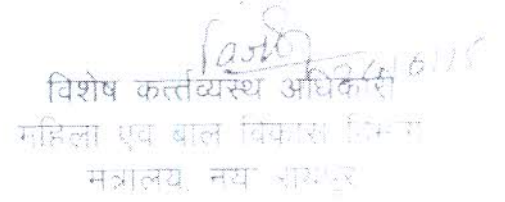 विशेष कर्त्तव्यस्थ अधिकारी
महिला एव बाल विकास
मत्रालय, नय रायपुर